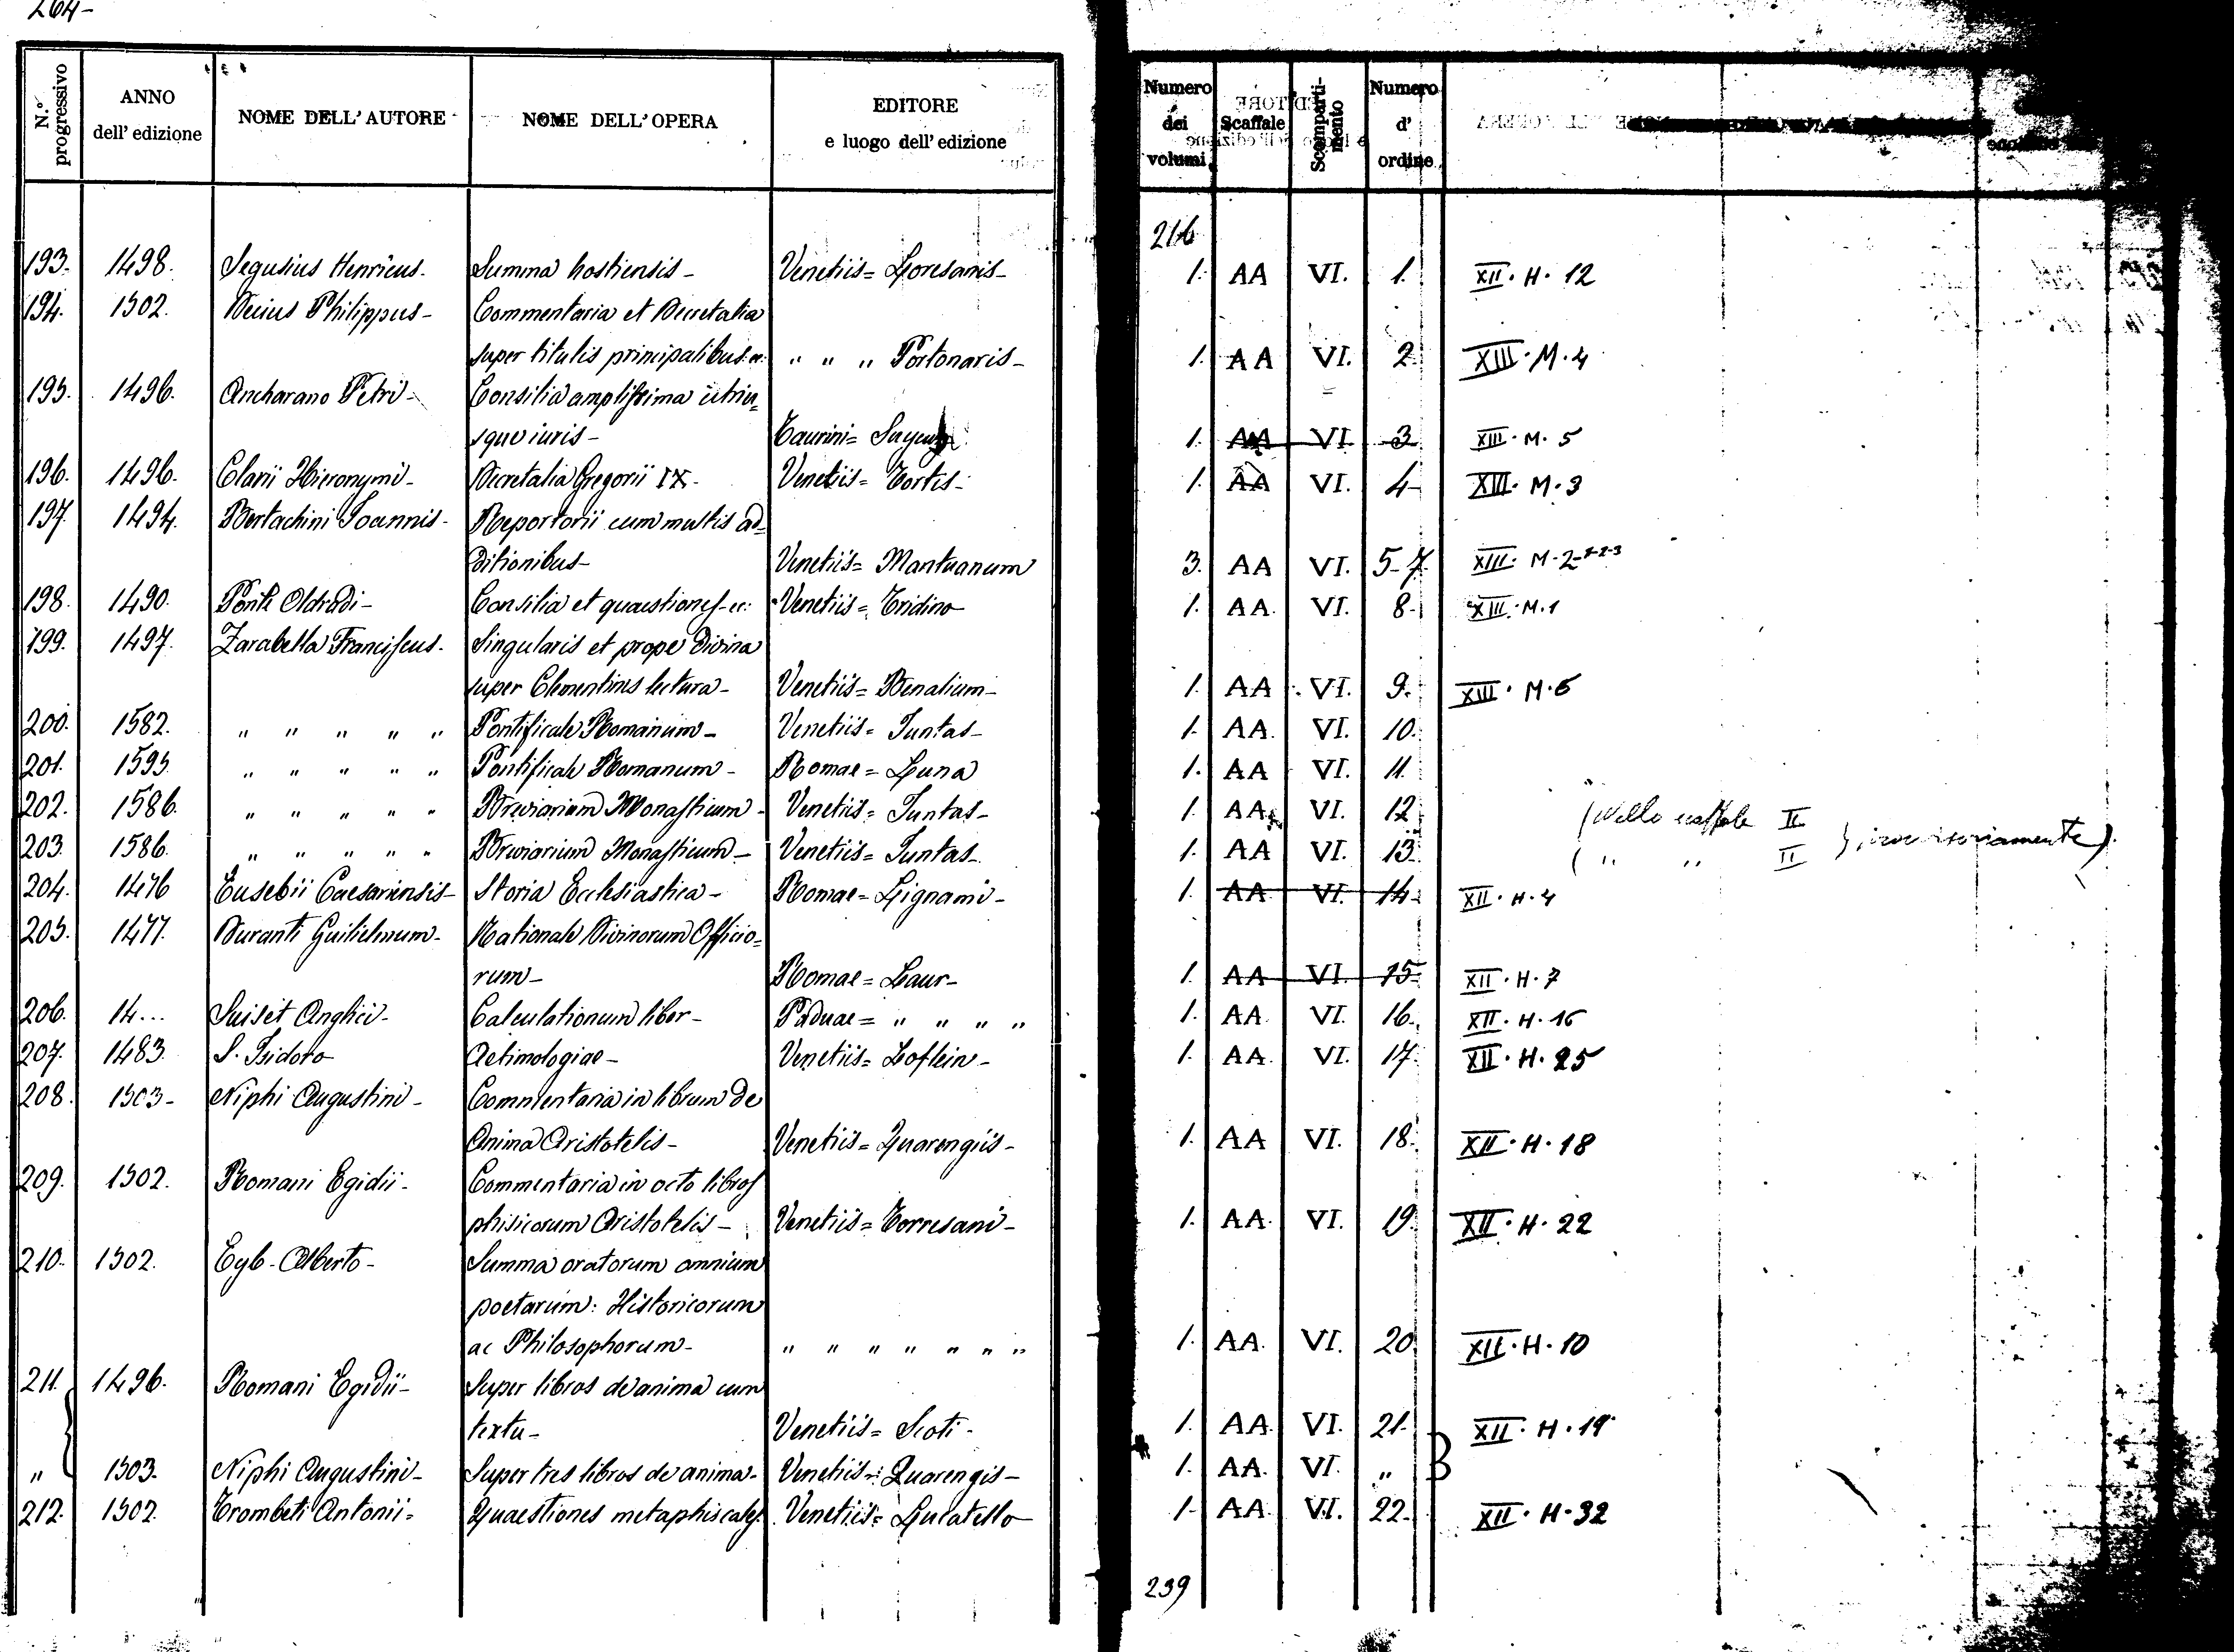 264-
N.° progressivo | ANNO dell' edizione | NOME DELL'AUTORE | NOME DELL'OPERA | EDITORE e luogo dell' edizione | Numero dei volumi | Scaffale | Scomparti-mento | Numero d' ordine
216
193. 1498. Segusius Henricus- Summa hostiensis- Venetiis= Loresanis- 1. AA VI. 1. XII. H. 12
194. 1502. Decius Philippus- Commentaria et Decretalia
super titulis principalibus ec: " " " Portonaris- 1. AA VI. 2. XIII. M. 4
195. 1496. Ancharano Petri- Consilia amplissima utriu=
sque iuris- Taurini= 1. AA VI 3 XIII. M. 5
196. 1496. Clarii Hieronymi- Decretalia Gregorii IX- Venetiis= Tortis- 1. AA VI. 4- XIII. M. 3
197. 1494. Bertachini Joannis- Repertorii cum multis ad=
ditionibus- Venetiis= Mantuanum 3. AA VI. 5-7. XIII. M-2-1-2-3
198. 1490. Ponte Oldradi- Consilia et quaestiones-ec: Venetiis= Tridino 1. AA. VI. 8- XIII. M. 1
199. 1497. Zarabella Franciscus. Singularis et prope divina
super Clementines lectura- Venetiis= Benalium- 1. AA VI. 9. XIII. M. 6
200. 1582. " " " " " Pontificale Romanum- Venetiis= Juntas- 1. AA. VI. 10.
201. 1595 " " " " " Pontificale Romanum- Romae= Luna 1. AA VI. 11.
202. 1586. " " " " " Breviarium Monasticum- Venetiis= Juntas- 1. AA. VI. 12 (Nello scaffale II
203. 1586. " " " " " Breviarium Monasticum- Venetiis= Juntas- 1. AA VI. 13. ( " " II } provvisoriamente).
204. 1476 Eusebii Caesariensis- Storia Ecclesiastica- Romae= Lignami- 1. AA VI. 14. XII. H. 4
205. 1477. Duranti Guilielmum- Rationale Divinorum Officio=
rum- Romae= Laur- 1. AA VI. 15 XII. H. 7
206. 14... Suiset Anglici- Calculationum liber- Paduae= " " " " 1. AA VI. 16. XII. H. 16
207. 1483. S. Isidoro Aetimologiae- Venetiis= Loslein- 1. AA. VI. 17. XII. H. 25
208. 1503- Niphi Augustini- Commentaria in librum de
Anima Aristotelis- Venetiis= Quarengiis- 1. AA VI. 18. XII. H. 18
209. 1502. Romani Egidii- Commentaria in octo libros
phisicorum Aristotelis- Venetiis= Torresani- 1. AA. VI. 19. XII. H. 22
210. 1502. Eyb- Alberto- Summa oratorum omnium
poetarum: Historicorum
ac Philosophorum- " " " " " " " 1. AA. VI. 20. XII. H. 10
211. 1496. Romani Egidii- Super libros de anima cum
textu- Venetiis= Scoti- 1. AA. VI. 21. XII. H. 19
" 1503. Niphi Augustini- Super tres libros de anima- Venetiis= Quarengis- 1. AA. VI. "
212. 1502. Trombeti Antonii= Quaestiones metaphiscales. Venetiis= Lucatello 1- AA. VI. 22. XII. H. 32
239